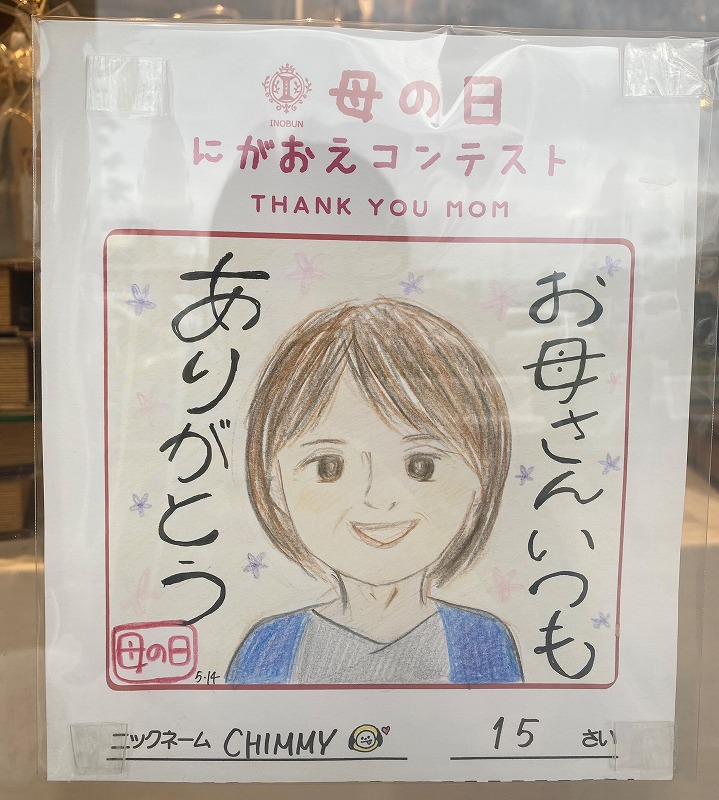 INOBUN
母の日
にがおえコンテスト
THANK YOU MOM
お母さんいつも
ありがとう
母の日
5.14
ニックネーム CHIMMY
15 さい